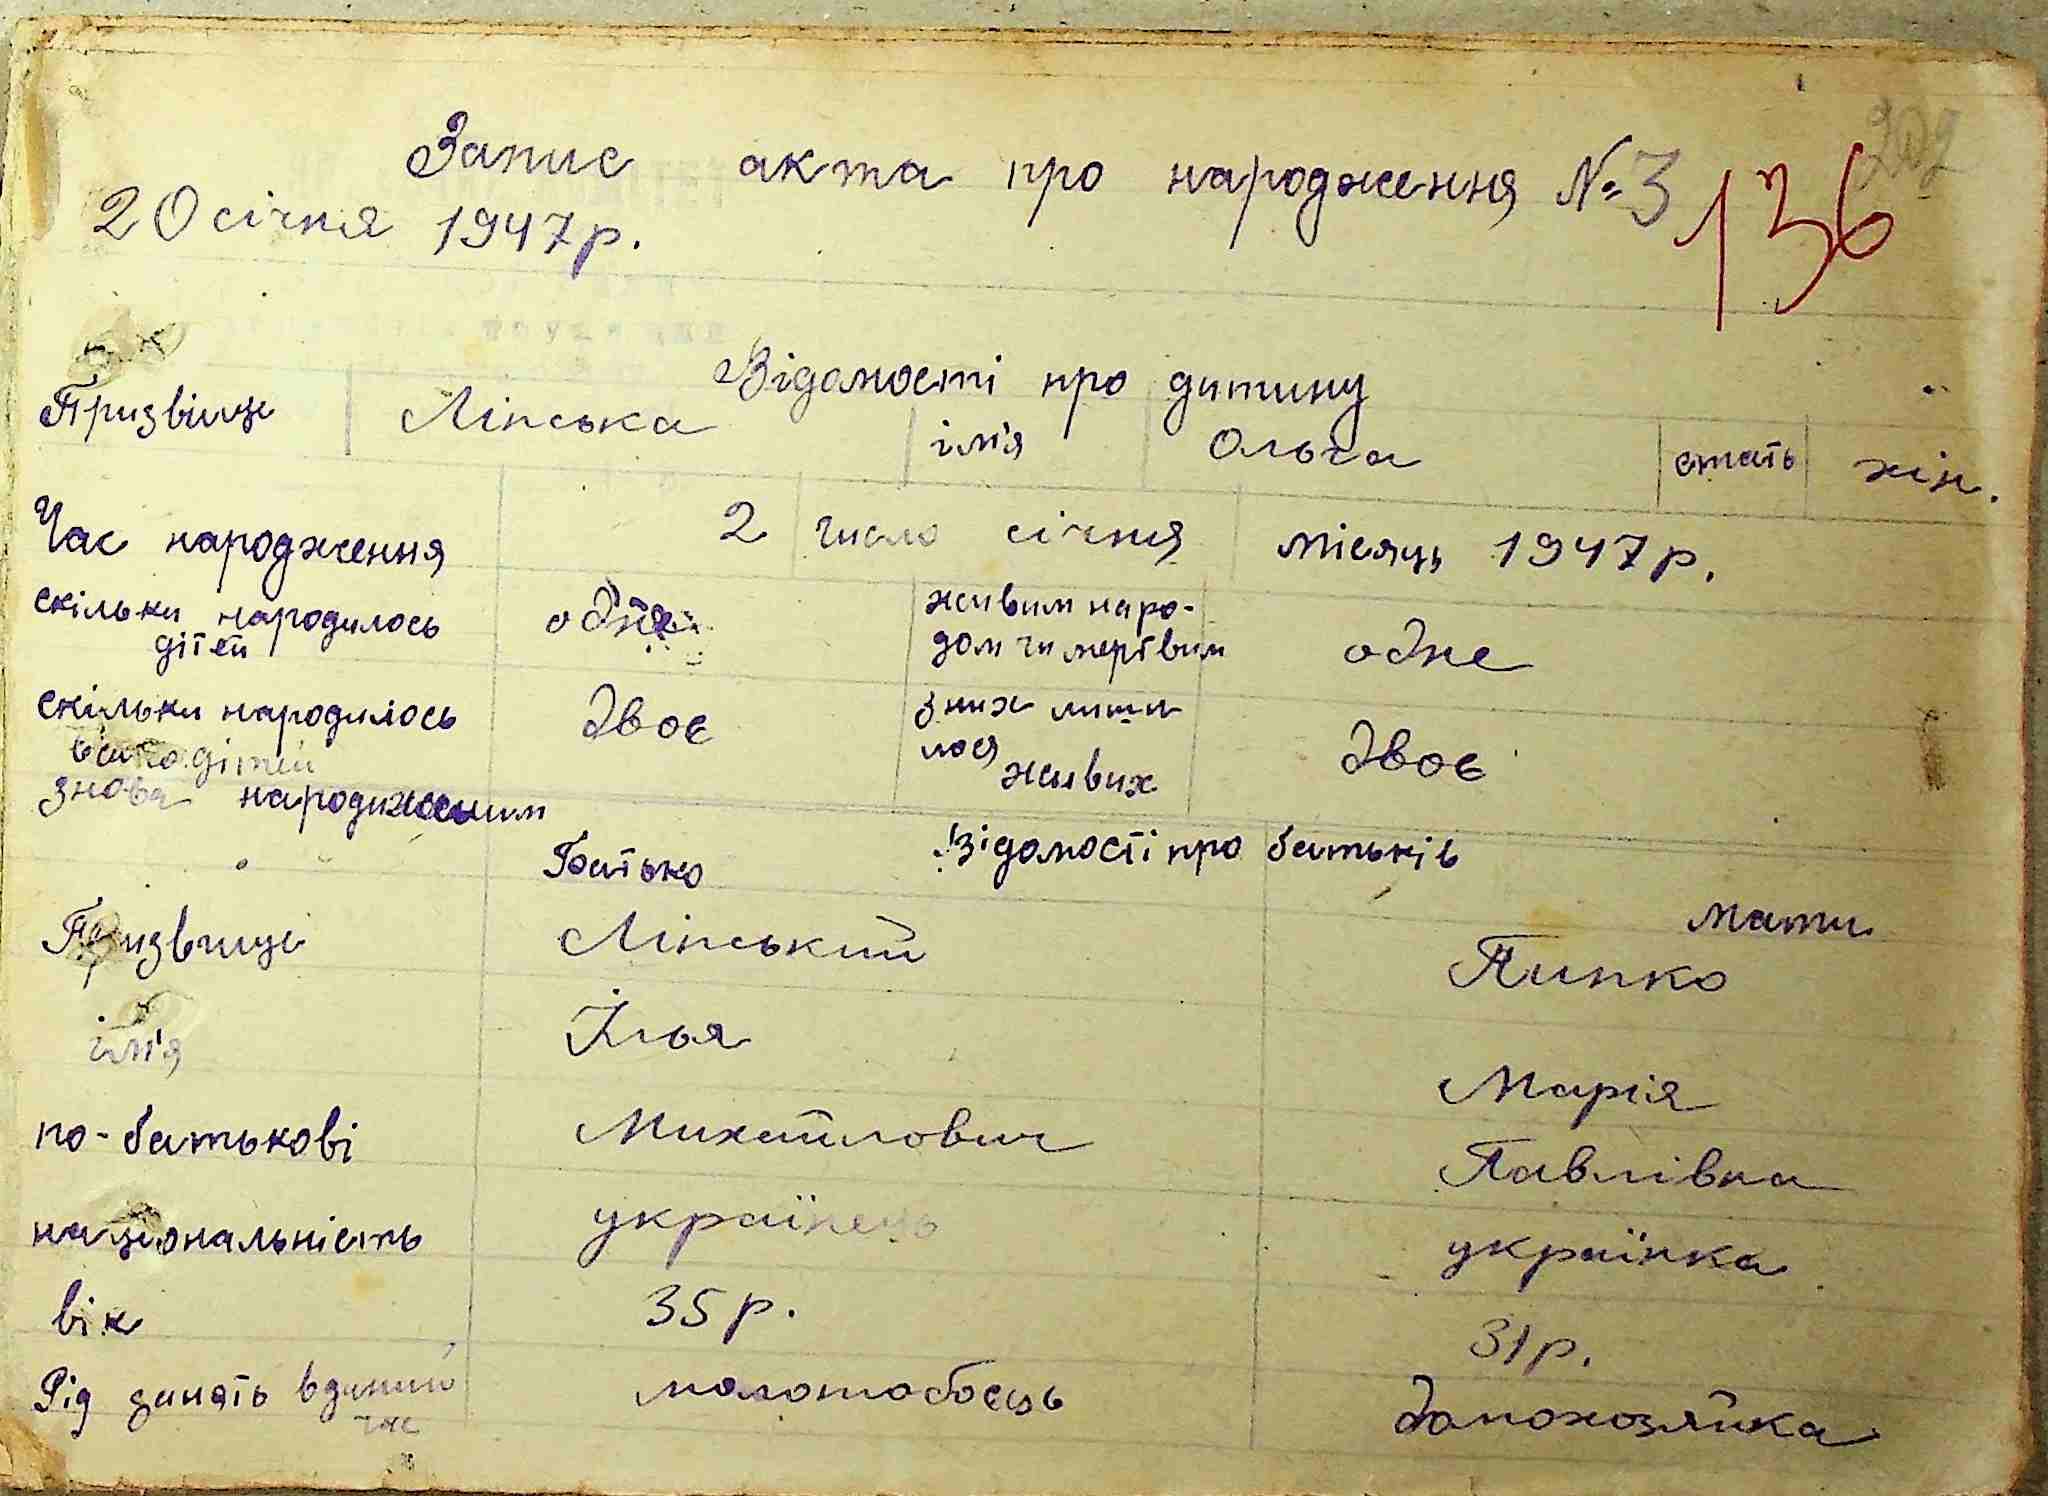 202
Запис акта про народження №3 136
20 січня 1947 р.
Відомості про дитину
Призвіще Ліпська ім'я Ольга стать жін.
Час народження 2 число січня місяць 1947 р.
скільки народилось дітей одне живим наро-дом чи мертвим одне
скільки народилось всього дітей знова народженим двоє з них лиши лося живих двоє
Відомості про батьків
Батько мати
Призвище Ліпський Пипко
ім'я Ілья Марія
по-батькові Михайлович Павлівна
національність українець українка
вік 35 р. 31 р.
Рід занять в даний час молотобоець домохозяйка